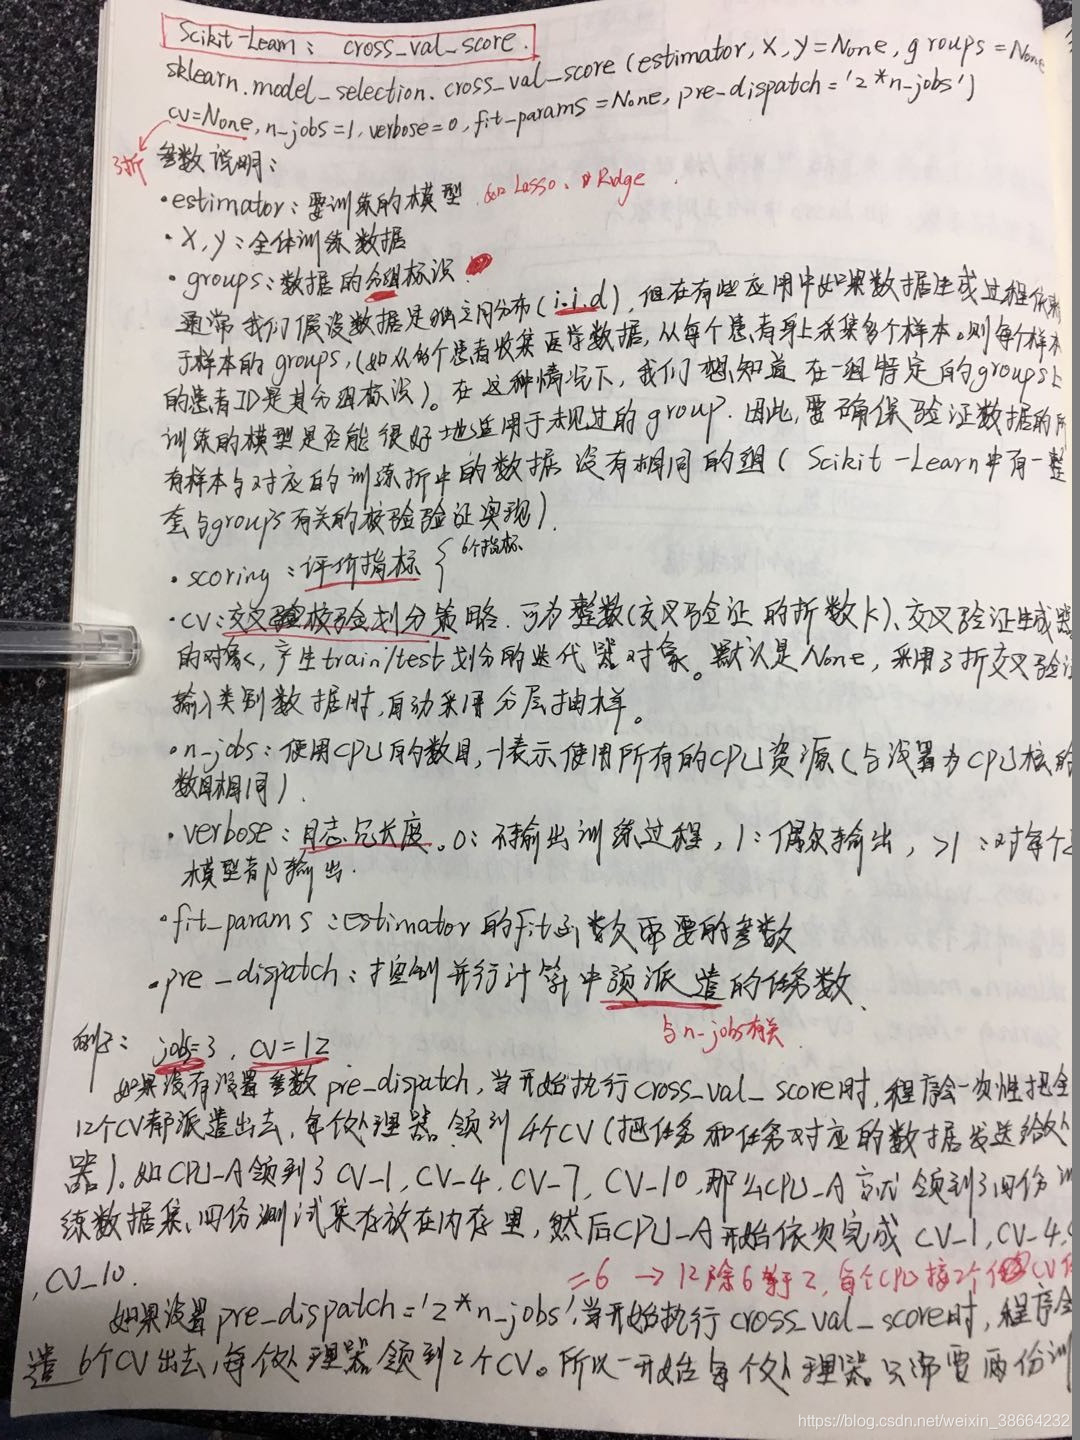 Scikit-Learn: cross_val_score.
sklearn.model_selection.cross_val_score(estimator, X, y=None, groups=None
cv=None, n_jobs=1, verbose=0, fit_params=None, pre_dispatch='2*n_jobs')
3折
参数说明:
·estimator: 要训练的模型 如 Lasso、Ridge
·X, y: 全体训练数据
·groups: 数据的分组标识
通常我们假设数据是独立同分布(i.i.d), 但在有些应用中如果数据生成过程依赖
于样本的groups, (如从多个患者收集医学数据, 从每个患者身上采集多个样本。则每个样本
的患者ID是其分组标识)。在这种情况下, 我们想知道在一组特定的groups上
训练的模型是否能很好地适用于未见过的group. 因此, 要确保验证数据的所
有样本与对应的训练折中的数据没有相同的组( Scikit-Learn中有一整
套与groups有关的校验验证实现).
·scoring: 评价指标 { 6个指标
·cv: 交叉校验划分策略. 可为整数(交叉验证的折数k)、交叉验证生成器
的对象, 产生train/test划分的迭代器对象。默认是None, 采用3折交叉验证
输入类别数据时, 自动采用分层抽样。
·n_jobs: 使用CPU的数目, -1表示使用所有的CPU资源(与设置为CPU核的
数目相同).
·verbose: 日志冗长度。0: 不输出训练过程, 1: 偶尔输出, >1: 对每个
模型都输出.
·fit_params: estimator的fit函数需要的参数
·pre_dispatch: 控制并行计算中预派遣的任务数.
与n_jobs有关
例子: jobs=3, cv=12
如果没有设置参数pre_dispatch, 当开始执行cross_val_score时, 程序会一次性把全
12个CV都派遣出去, 每个处理器领到4个CV(把任务和任务对应的数据发送给处
器). 如CPU_A领到了CV_1, CV_4, CV_7, CV_10, 那么CPU_A就领到了四份训
练数据集、四份测试集存放在内存里, 然后CPU_A开始依次完成 CV_1, CV_4,
, CV_10.
=6 → 12除6等于2, 每个CPU接2个 CV
如果设置pre_dispatch='2*n_jobs', 当开始执行cross_val_score时, 程序会
遣6个CV出去, 每个处理器领到2个CV。所以一开始每个处理器只需要两份训
https://blog.csdn.net/weixin_38664232